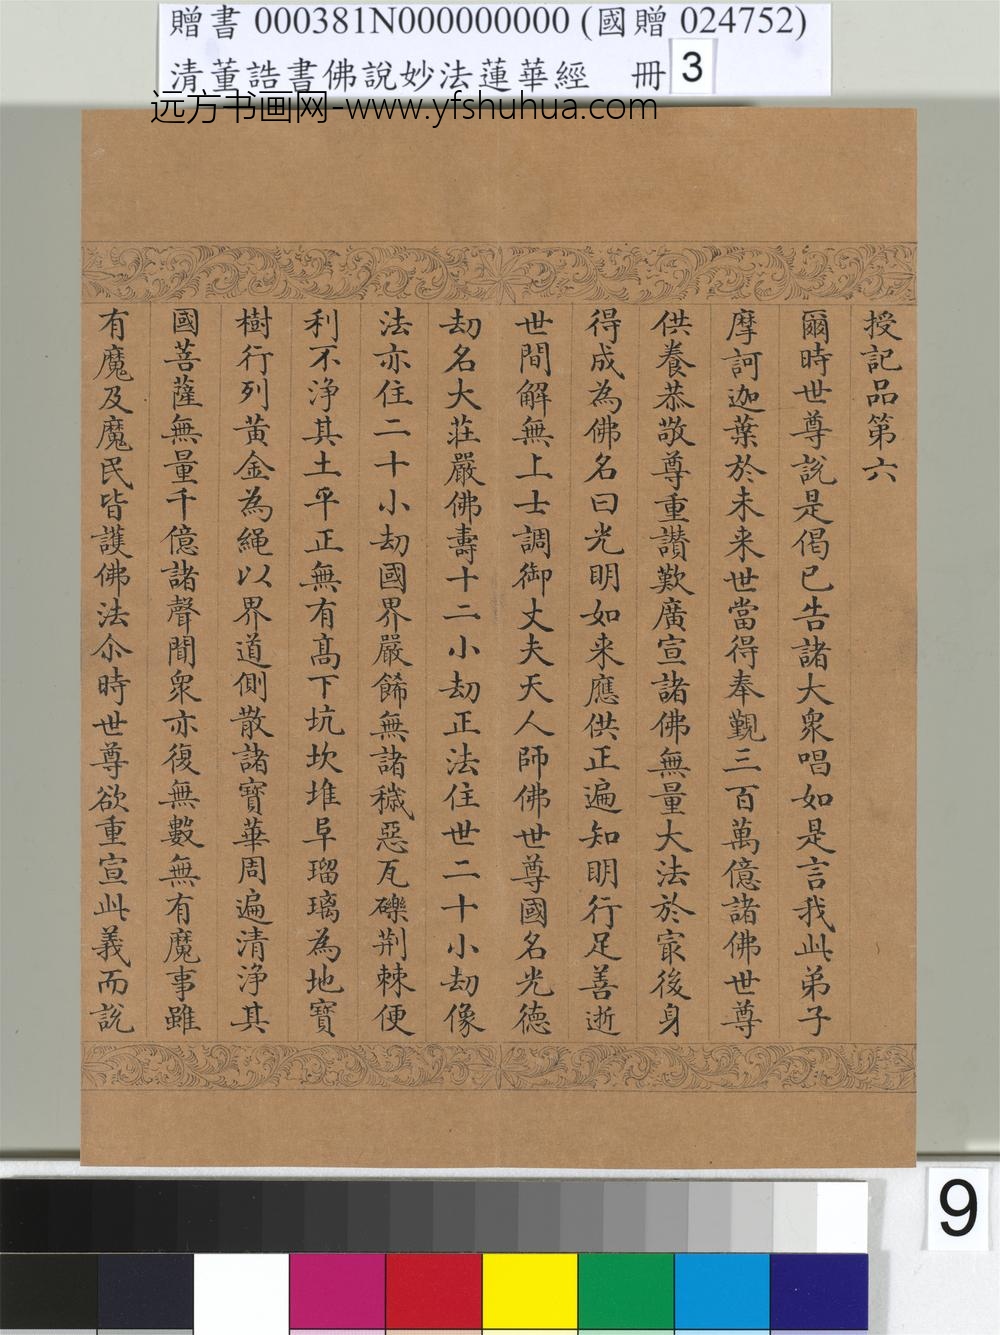 贈書 000381N000000000 (國贈 024752)
清董誥書佛說妙法蓮華經 冊 3
远方书画网-www.yfshuhua.com
授記品第六
爾時世尊說是偈已告諸大衆唱如是言我此弟子
摩訶迦葉於未来世當得奉覲三百萬億諸佛世尊
供養恭敬尊重讚歎廣宣諸佛無量大法於㝡後身
得成為佛名曰光明如来應供正遍知明行足善逝
世間解無上士調御丈夫天人師佛世尊國名光德
劫名大莊嚴佛壽十二小劫正法住世二十小劫像
法亦住二十小劫國界嚴餙無諸穢惡瓦礫荆棘便
利不淨其土平正無有髙下坑坎堆阜瑠璃為地寶
樹行列黃金為繩以界道側散諸寶華周遍清淨其
國菩薩無量千億諸聲聞衆亦復無數無有魔事雖
有魔及魔民皆護佛法尒時世尊欲重宣此義而說
9